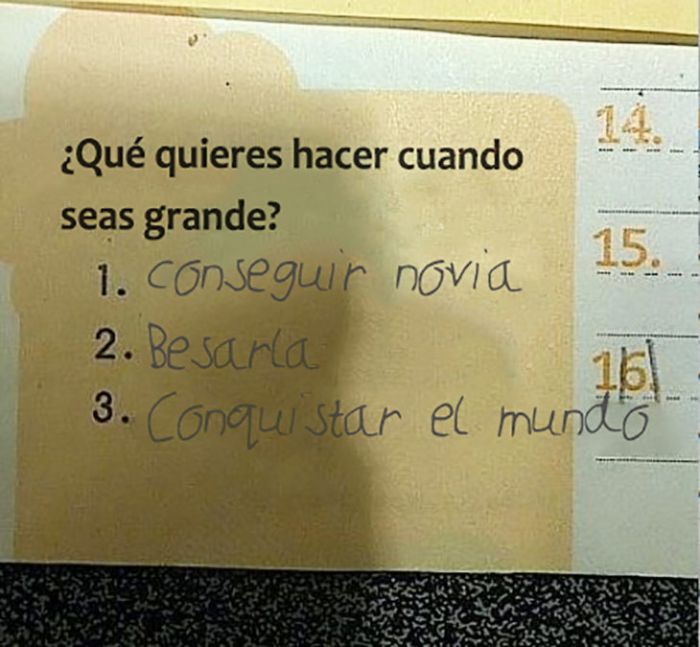 ¿Qué quieres hacer cuando
seas grande?
1. conseguir novia
2. Besarla
3. Conquistar el mundo
14.
15.
16.